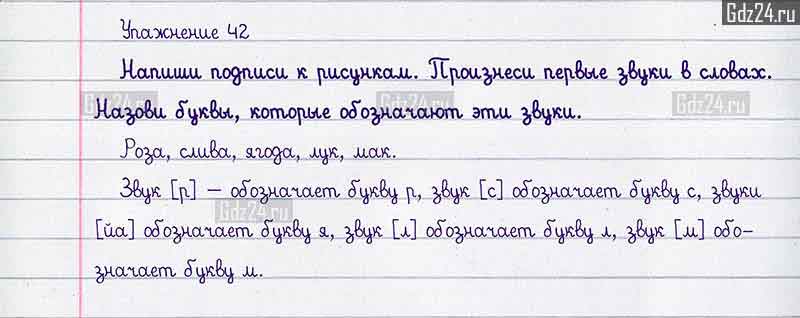 Gdz24.ru
Упажнение 42
Напиши подписи к рисункам. Произнеси первые звуки в словах.
Gdz24.ru Gdz24.ru Gdz24.ru
Назови буквы, которые обозначают эти звуки.
Роза, слива, ягода, лук, мак.
Звук [р] – обозначает букву р, звук [с] обозначает букву с, звуки
Gdz24.ru
[йа] обозначает букву я, звук [л] обозначает букву л, звук [м] обо-
значает букву м.